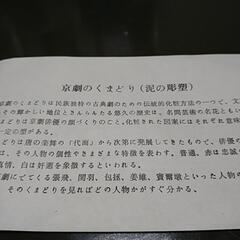 京劇のくまどり(泥の彫塑)
京劇のくまどりは民族独特の古典劇のための伝統的化粧方法の一つで、文
その輝かしい地位ときらんらんたる悠久の歴史は、名間芸術の名花ともい
どりは京劇俳優の顔づくりのこと。化粧された図案にはそれぞれ意味
一定の型がある。
どりは唐の楽舞の「代面」から次第に発展してきたもので、俳優の
は、その人物の個性やさまざまな特徴を表わす。普通、赤は忠誠
真情、白は奸悪を象徴するといわれる。
京劇にでてくる張飛、関羽、包拯、姜維、竇爾墩といった人物の
そのくまどりを見ればどの人物かがすぐ分かる。